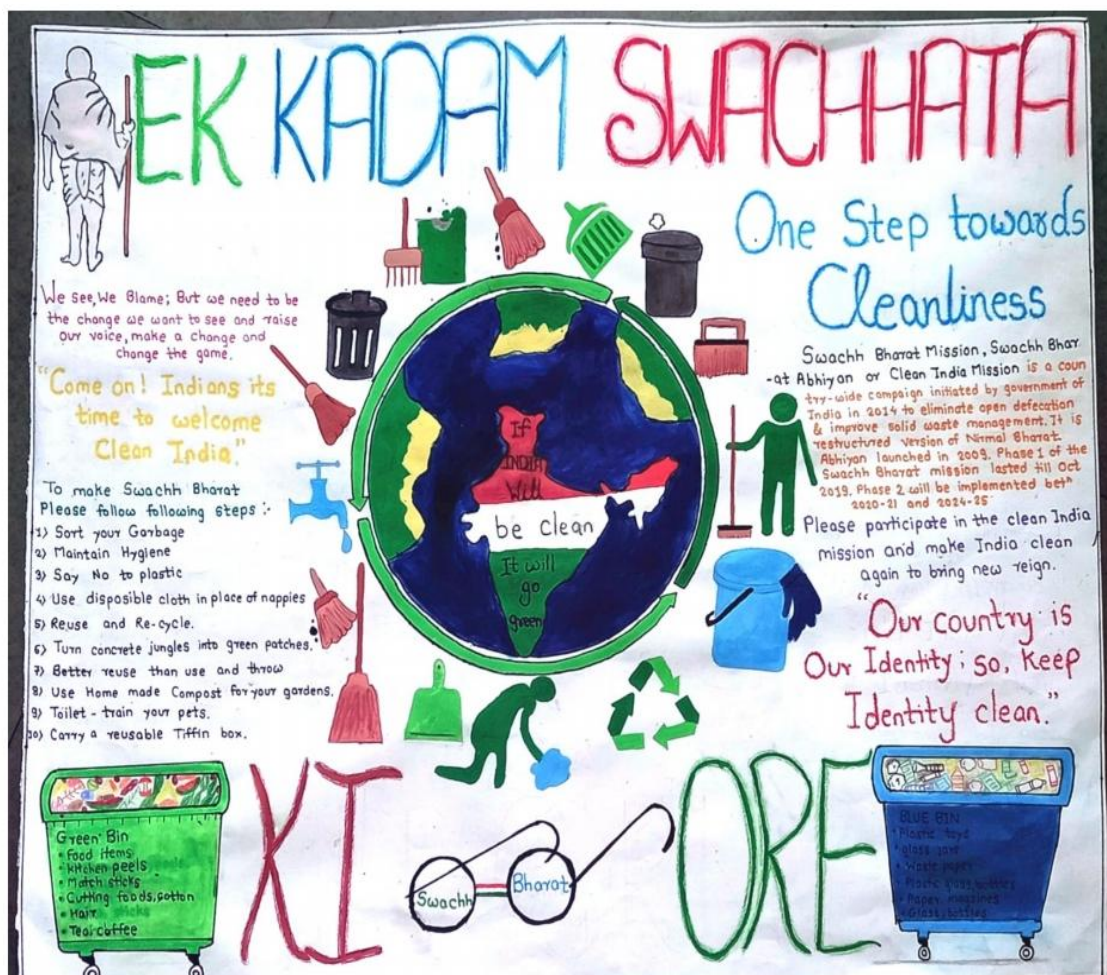 EK KADAM SWACHHATA
One Step towards
Cleanliness
We see, We Blame; But we need to be
the change we want to see and raise
our voice, make a change and
change the game.
"Come on! Indians its
time to welcome
Clean India."
To make Swachh Bharat
Please follow following steps :-
1) Sort your Garbage
2) Maintain Hygiene
3) Say No to plastic
4) Use disposible cloth in place of nappies
5) Reuse and Re-cycle.
6) Turn concrete jungles into green patches.
7) Better reuse than use and throw
8) Use Home made Compost for your gardens.
9) Toilet - train your pets.
10) Carry a reusable Tiffin box.
If
INDIA
Will
be clean
It will
go
green
Swachh Bharat Mission, Swachh Bhar
-at Abhiyan or Clean India Mission is a coun
try-wide campaign initiated by government of
India in 2014 to eliminate open defecation
& improve solid waste management. It is
restructured version of Nirmal Bharat
Abhiyan launched in 2009. Phase 1 of the
Swachh Bharat mission lasted till Oct
2019. Phase 2 will be implemented betn
2020-21 and 2024-25
Please participate in the clean India
mission and make India clean
again to bring new reign.
"Our country is
Our Identity; so, Keep
Identity clean."
Green Bin
• Food items
• kitchen peels
• Match sticks
• Cutting foods, cotton
• Hair
• Tea, coffee
KI
Swachh
Bharat
ORE
BLUE BIN
• Plastic toys
• glass jars
• Waste paper
• Plastic glass, bottles
• Paper, magzines
• Glass, bottles